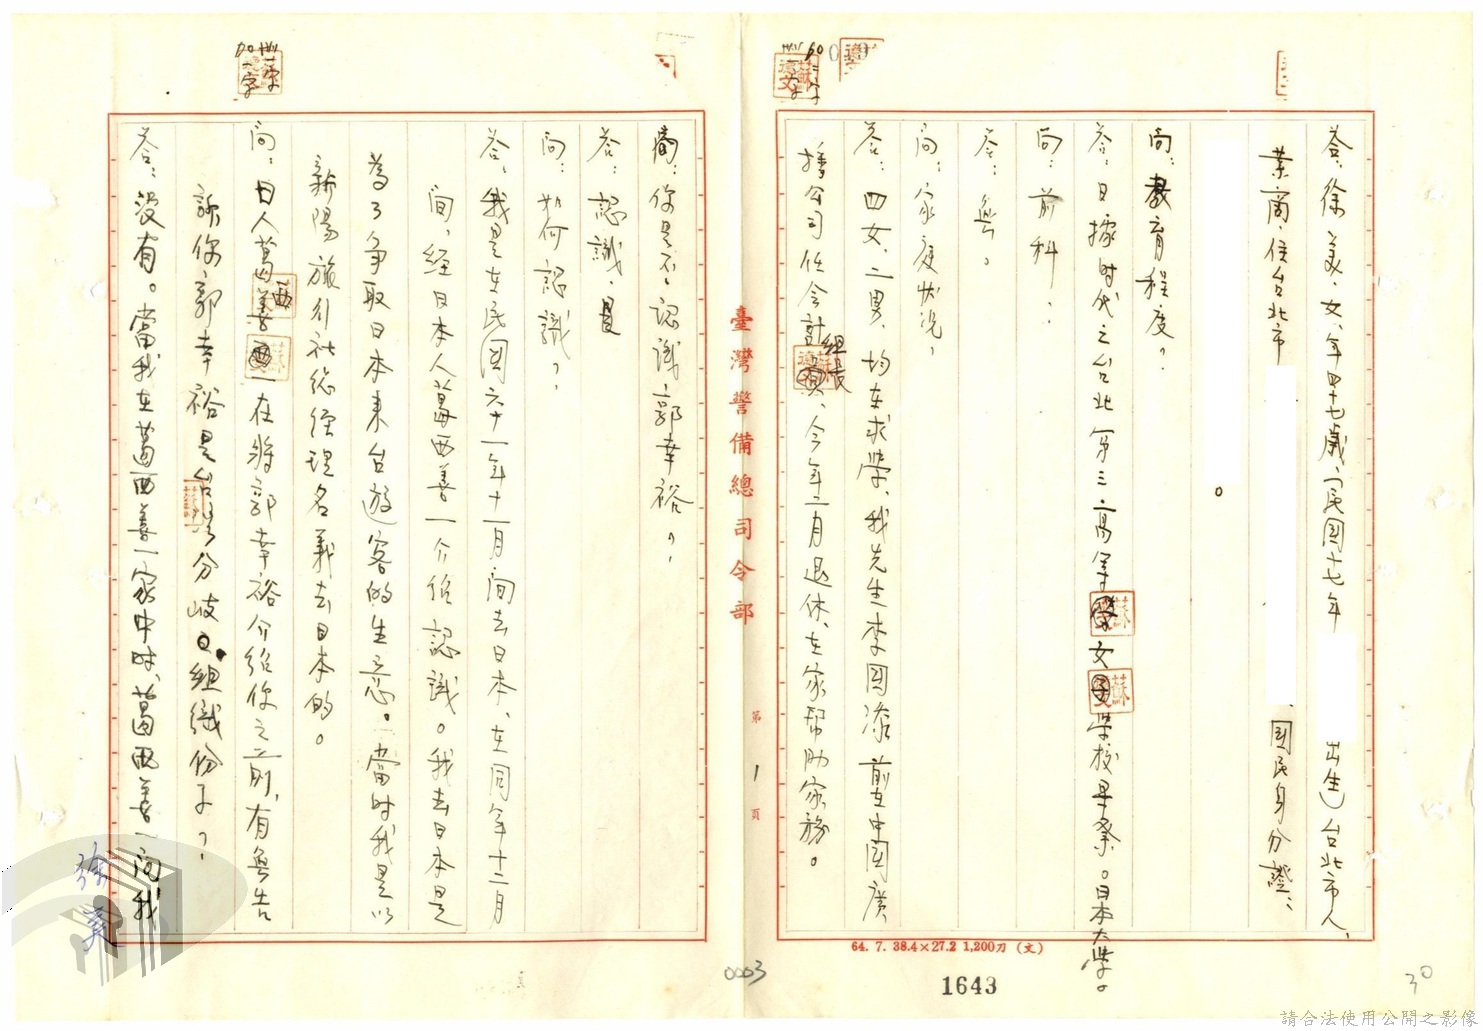 答：徐美、女、年四十七歲（民國十七年
出生）台北市人、
業商、住台北市
、國民身分證：
。
問：教育程度？
答：日據时代之台北第三高等女學校畢業。日本大學。
問：前科？
答：無。
問：家庭狀況？
答：四女、二男、均在求學、我先生李國漆前在中國廣
播公司任会計組長、今年二月退休、在家帮助家務。
問：你是不認識郭幸裕？
答：認識、是
問：如何認識？
答：我是在民國六十一年十一月间去日本、在同年十二月
间、經日本人葛西善一介紹認識。我去日本是
為了争取日本來台遊客的生意。當时我是以
新陽旅行社總經理名義去日本的。
問：日人葛西善一在將郭幸裕介紹你之前，有無告
訴你郭幸裕是台灣分岐組織份子？
答：沒有。當我在葛西善一家中时、葛西善一问我
徐美
臺灣警備總司令部
第1頁
64. 7. 38.4×27.2 1,200刀 (文)
0003
1643
30
請合法使用公開之影像